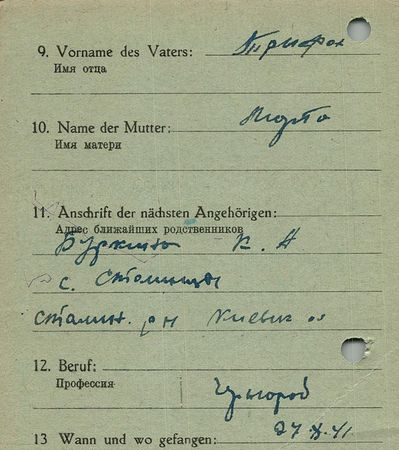 9. Vorname des Vaters: Трифон
Имя отца
10. Name der Mutter:
Имя матери
11. Anschrift der nächsten Angehörigen:
Адрес ближайших родственников
К. А
с.
сталин. рн Киевск
12. Beruf:
Профессия
13 Wann und wo gefangen: 27.X.41